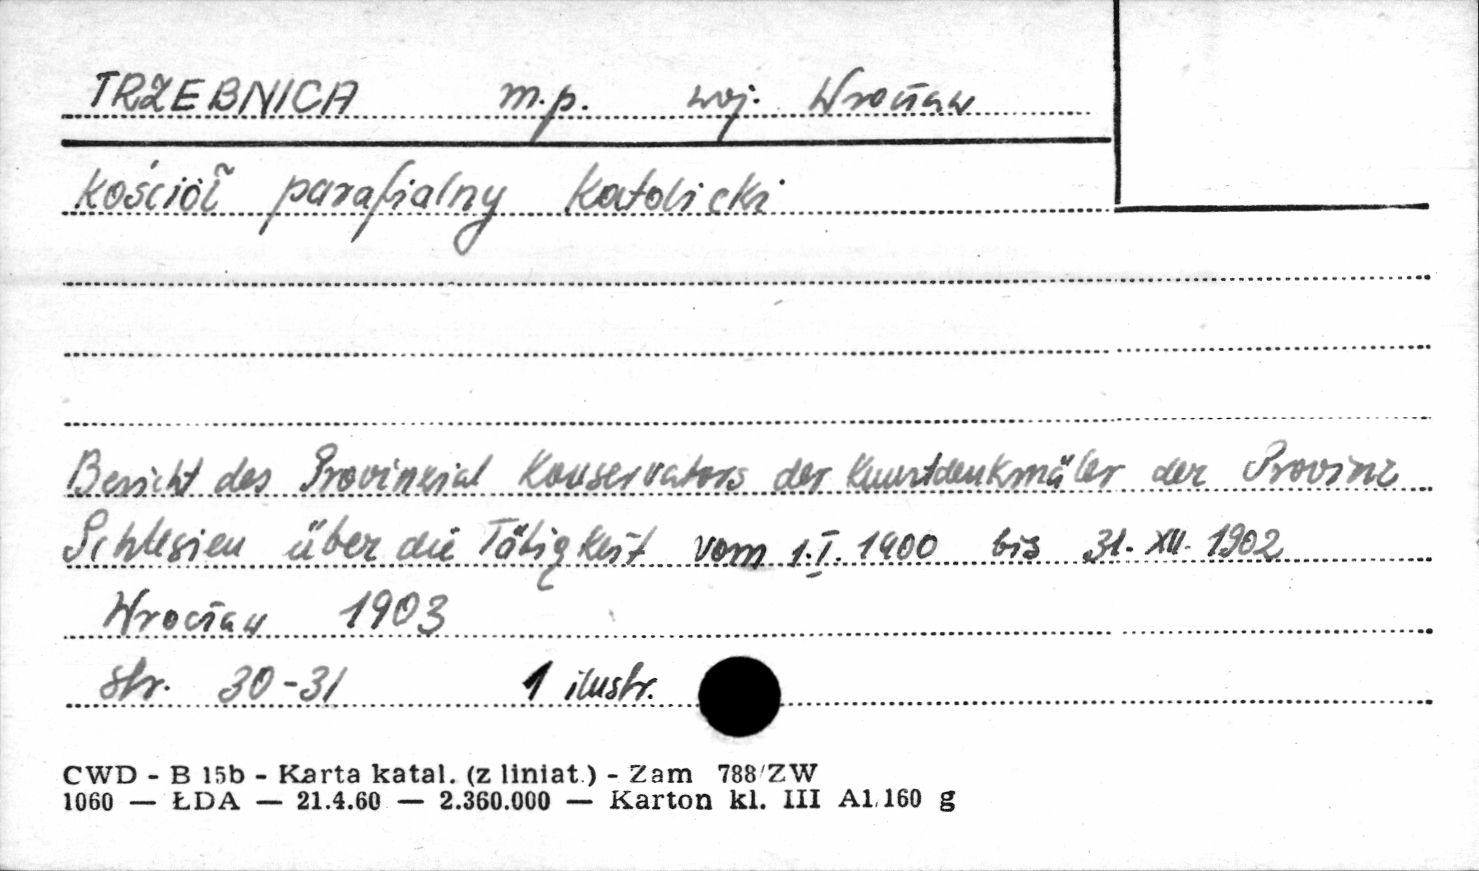 TRZEBNICA m.p. woj. Wrocław
kościół parafialny katolicki
Bericht des Provinzial Konservators der Kunstdenkmäler der Provinz
Schlesien über die Tätigkeit vom 1.I. 1900 bis 31. XII. 1902
Wrocław 1903
str. 30-31 1 ilustr.
CWD - B 15b - Karta katal. (z liniat.) - Zam 788/ZW
1060 — ŁDA — 21.4.60 — 2.360.000 — Karton kl. III A1,160 g